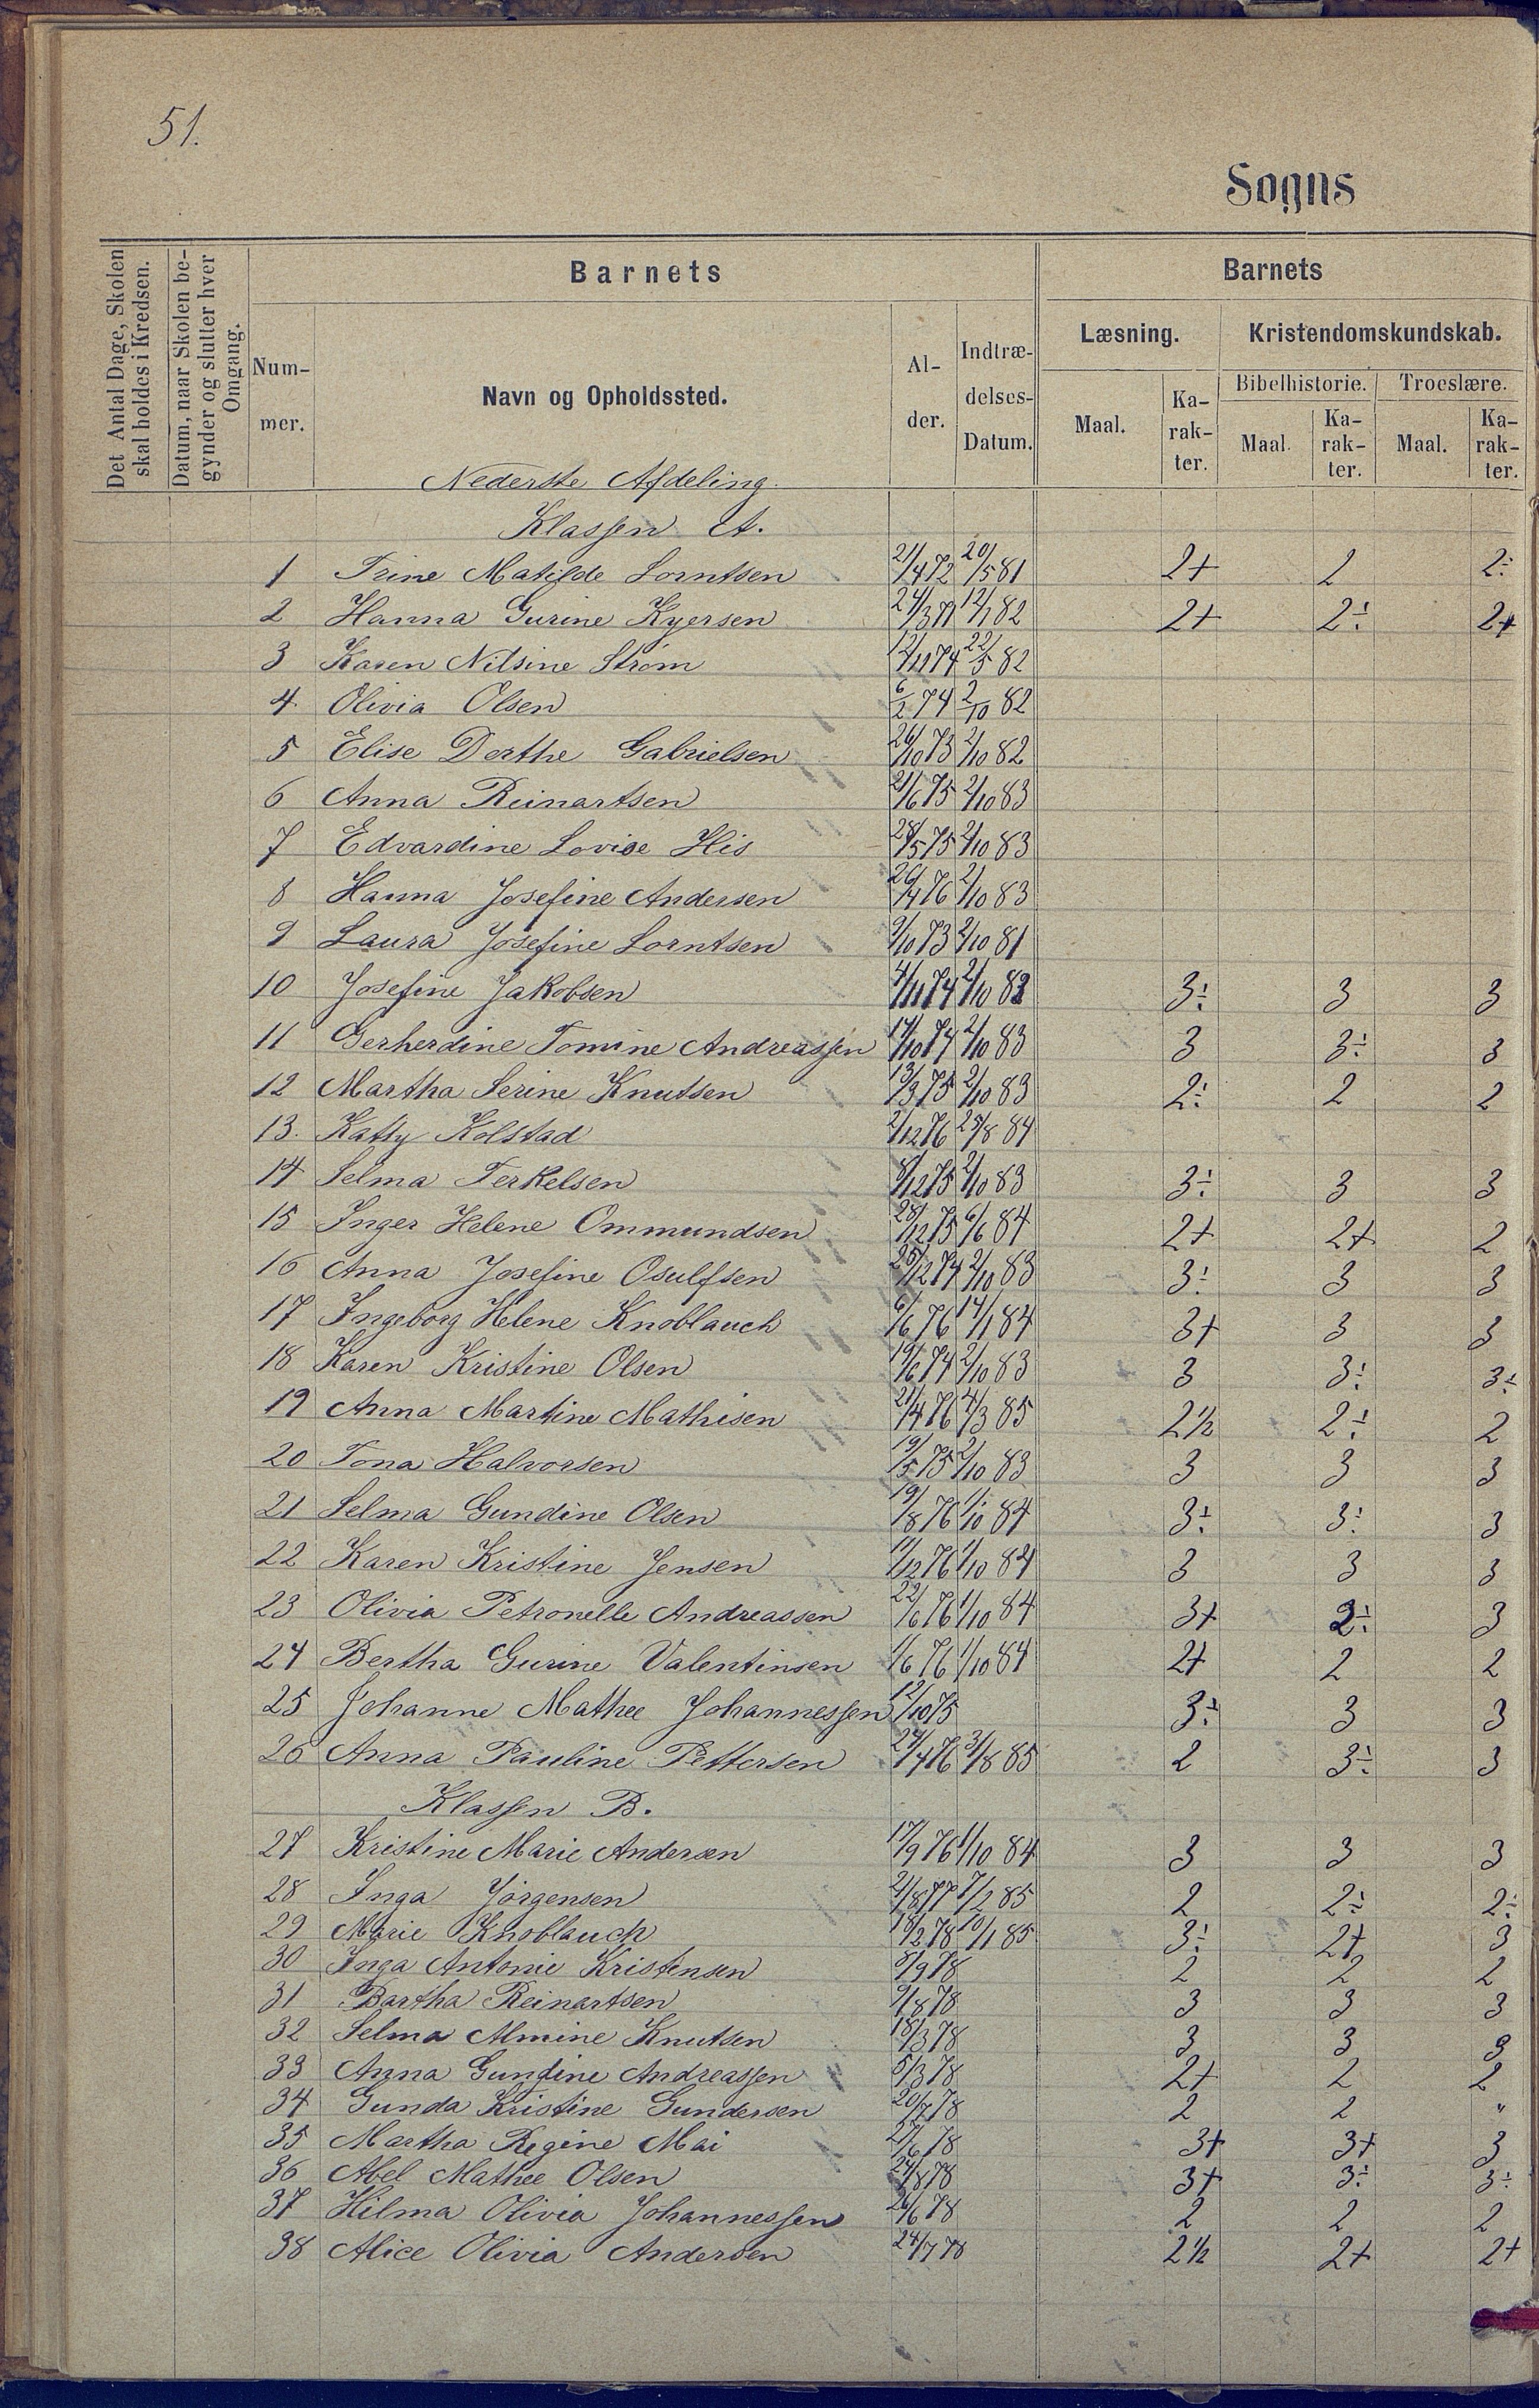 51.
Sogns
Det Antal Dage, Skolen skal holdes i Kredsen.
Datum, naar Skolen begynder og slutter hver Omgang.
Barnets
Barnets
Nummer.
Navn og Opholdssted.
Alder.
Indtrædelses-Datum.
Læsning.
Kristendomskundskab.
Bibelhistorie.
Troeslære.
Maal.
Karakter.
Maal.
Karakter.
Maal.
Karakter.
Nederste Afdeling.
Klassen A.
1 Trine Matilde Lorntsen 21/4 72 20/5 81 2+ 2 2÷
2 Hanna Gurine Kyersen 24/3 71 12/1 82 2+ 2÷ 2+
3 Karen Nilsine Strøm 12/11 74 22/5 82
4 Olivia Olsen 6/2 74 2/10 82
5 Elise Dorthe Gabrielsen 26/10 73 2/10 82
6 Anna Reinartsen 21/6 75 2/10 83
7 Edvardine Lovise His 28/5 75 2/10 83
8 Hanna Josefine Andersen 26/4 76 2/10 83
9 Laura Josefine Lorntsen 9/10 73 2/10 81
10 Josefine Jakobsen 4/11 74 2/10 82 3÷ 3 3
11 Gerherdine Tomine Andreassen 14/10 74 2/10 83 3 3÷ 3
12 Martha Serine Knutsen 13/3 75 2/10 83 2÷ 2 2
13. Kathy Kolstad 2/12 76 25/8 84
14 Selma Terkelsen 8/12 75 2/10 83 3÷ 3 3
15 Inger Helene Ommundsen 28/12 75 6/6 84 2+ 2+ 2
16 Anna Josefine Osulfsen 25/12 74 2/10 83 3÷ 3 3
17 Ingeborg Helene Knoblauch 6/6 76 14/1 84 3+ 3 3
18 Karen Kristine Olsen 19/6 74 2/10 83 3 3÷ 3÷
19 Anna Martine Mathisen 21/4 76 4/3 85 2½ 2÷ 2
20 Tona Halvorsen 19/5 75 2/10 83 3 3 3
21 Selma Gundine Olsen 19/8 76 1/10 84 3÷ 3÷ 3
22 Karen Kristine Jensen 11/12 76 1/10 84 3 3 3
23 Olivia Petronelle Andreassen 22/6 76 1/10 84 3+ 2÷ 3
24 Bertha Gurine Valentinsen 1/6 76 1/10 84 2+ 2 2
25 Johanne Mathee Johannessen 12/10 75 3÷ 3 3
26 Anna Pauline Pettersen 24/4 76 31/8 85 2 3÷ 3
Klassen B.
27 Kristine Marie Andersen 17/9 76 1/10 84 3 3 3
28 Inga Jørgensen 2/8 77 7/2 85 2 2÷ 2÷
29 Marie Knoblauch 18/2 78 10/1 85 3÷ 2+ 3
30 Inga Antonie Kristensen 8/9 78 2 2 2
31 Bartha Reinartsen 9/8 78 3 3 3
32 Selma Almine Knutsen 18/3 78 3 3 3
33 Anna Gundine Andreassen 5/3 78 2+ 2 2
34 Gunda Kristine Gundersen 20/7 78 2 2 "
35 Martha Regine Mai 27/6 78 3+ 3+ 3
36 Abel Mathee Olsen 24/8 78 3+ 3÷ 3÷
37 Hilma Olivia Johannessen 26/6 78 2 2 2
38 Alice Olivia Andersen 24/7 78 2½ 2+ 2+